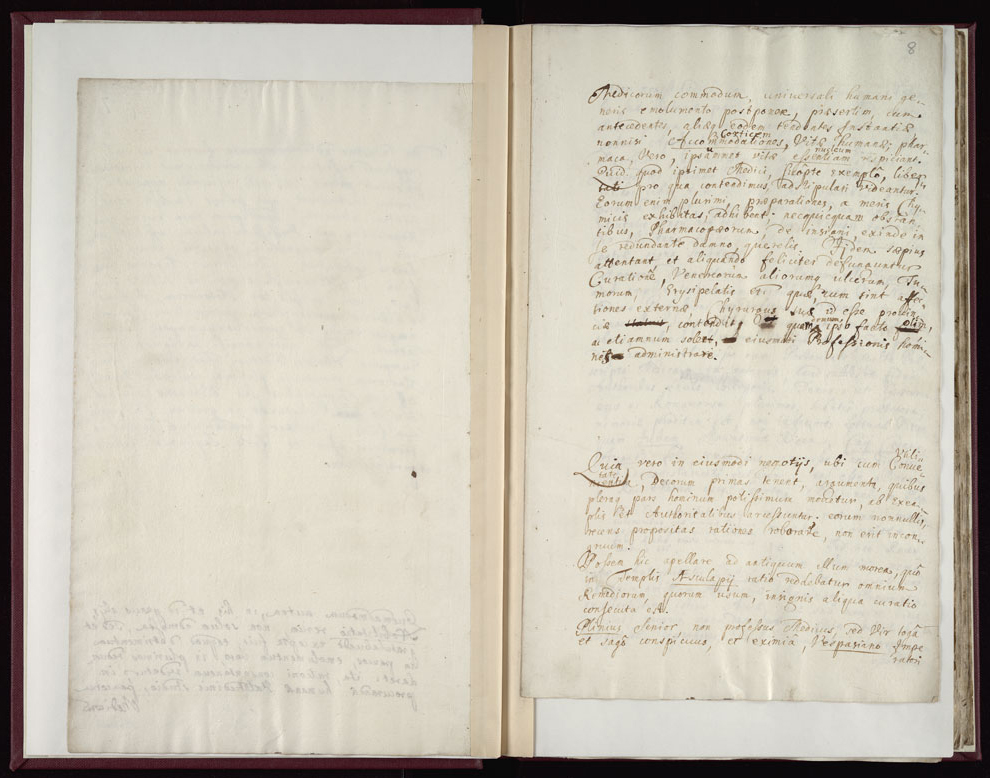 8
Medicorum commodum, universali humani ge-
neris emolumento postponere, præsertim, cum
antecedentes, aliæq eodem tendentes Instantiæ
nonnisi Corticem
Accommodationes, Vitæ humanæ; phar-
maca, vero, ipsammet vitæ nucleum
essentiam respiciant.
quod ipsimet Medici, suopte exemplo, liber-
tati pro qua contendimus, adstipulari videantur.
Eorum enim plurimi præparationes, a meris Chy-
micis exhibitas, adhibent. necquicquam obstan-
tibus, Pharmacopæorum, de insigni, exinde in
se redundante damno, querelis. Iidem sæpius
attentant et aliquando feliciter defunguntur
Curatione, Venereorum aliorumq ulcerum, Tu-
morum, Erysipelatis &c. quæ, cum sint Affec-
tiones externæ, Chyrurgus suæ id esse provin-
ciæ contendit; quam ipso facto
ac etiamnum solet, eiusmodi Professionis homi-
nes administrare.
Utili-
Quia vero in eiusmodi negotijs, ubi cum Conve-
tate
nientia, Decorum primas tenent, argumenta, quibus
pleraq pars hominum potissimum movetur, ab Exem-
plis et Authoritatibus arcessuntur. eorum nonnullis,
recens propositas rationes roborare, non erit incon-
gruum.
Possem hic apellare ad antiquum illum morem, quo
in Templis Æsculapij ratio reddebatur omnium
Remediorum, quorum usum, insignis aliqua curatio
consecuta est.
Plinius Senior, non professus Medicus, sed Vir toga
et sago conspicuus, et eximiæ, Vespasiano Impe
ratori